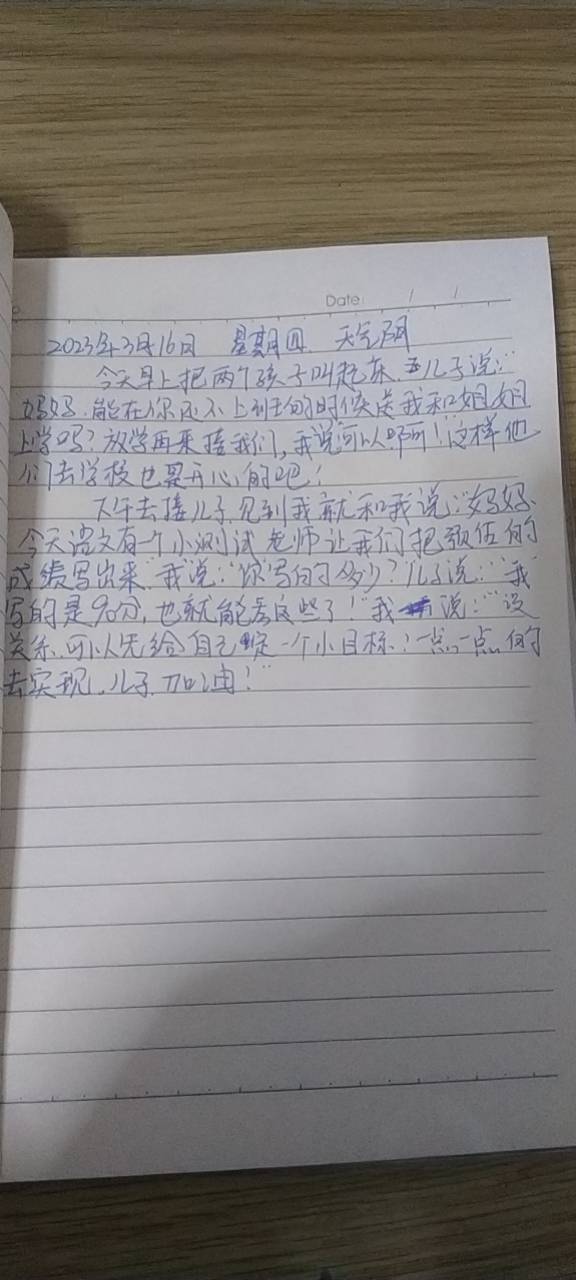 Date: / /
2023年3月16日 星期四 天气阴
今天早上把两个孩子叫起床,儿子说:"
妈妈,能在你还不上班的时候送我和姐姐
上学吗?放学再来接我们,我说可以啊!这样他
们去学校也是开心的吧!
下午去接儿子,见到我就和我说:"妈妈、
今天语文有一个小测试,老师让我们把预估的
成绩写出来"我说:"你写的多少?儿子说:"我
写的是90分,也就能考这些了!"我说:"没
关系,可以先给自己定一个小目标!一点一点的
去实现,儿子,加油!"